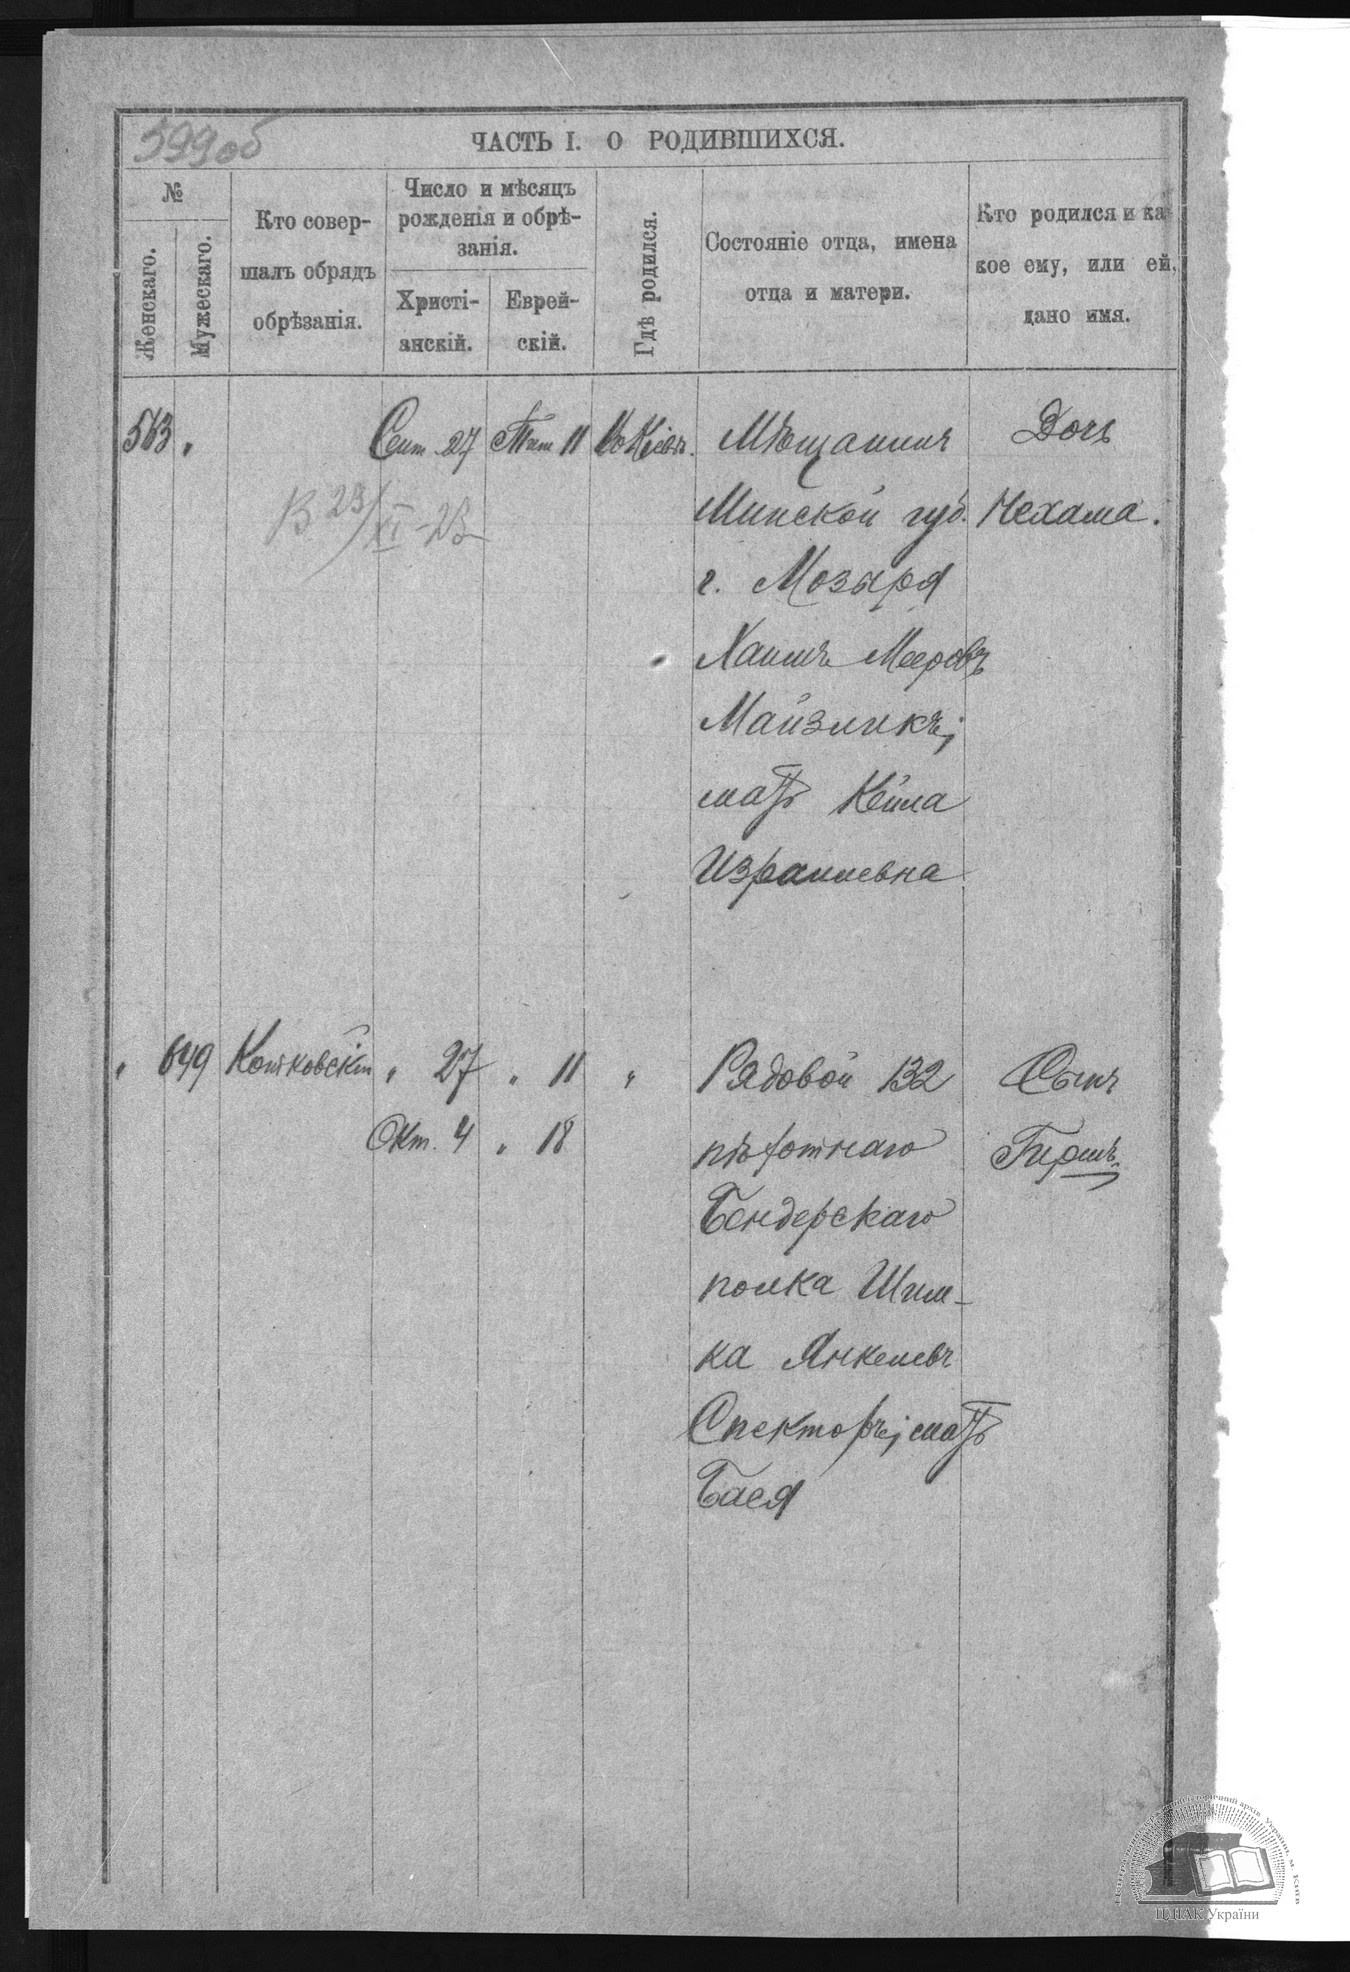 599об
ЧАСТЬ I. О РОДИВШИХСЯ.
№
Женскаго.
Мужескаго.
Кто совер-
шалъ обрядъ
обрѣзанія.
Число и мѣсяцъ
рожденія и обрѣ-
занія.
Христі-
анскій.
Еврей-
скій.
Гдѣ родился.
Состояніе отца, имена
отца и матери.
Кто родился и ка-
кое ему, или ей,
дано имя.
563 "
Сент. 27
Тиш 11
Въ Кіевѣ.
Мѣщанинъ
Минской губ.
г. Мозыря
Хаимъ Мееровъ
Майзликъ;
мать Кейла
Израилевна
Дочь
Нехама.
В 23/XI-23
" 649
Котковскій
" 27
Окт. 4
" 11
" 18
"
Рядовой 132
пѣхотнаго
Бендерскаго
полка Шим-
ка Янкелевъ
Спекторъ; мать
Бася
Сынъ
Гиршъ.
ЦДІАК України